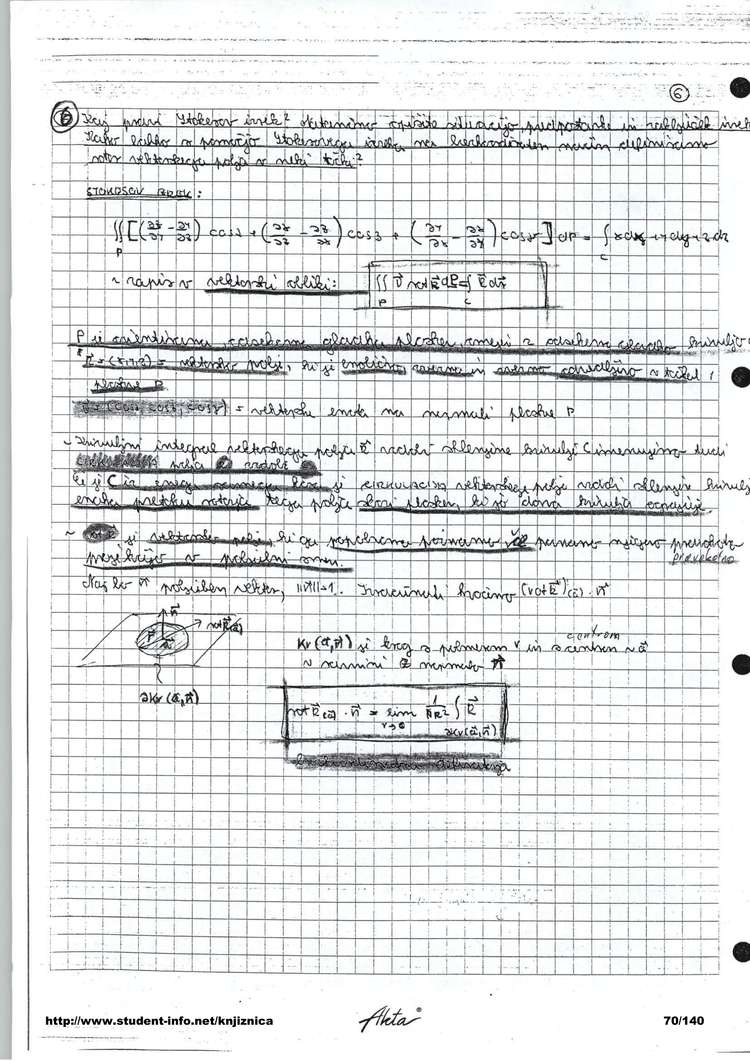 6
6 Kaj pravi Stokesov izrek? Natančno opišite situacijo, predpostavke in zaključek izreka
Kako lahko s pomočjo Stokesovega izreka na brezkoordinaten način definiramo
rotor vektorskega polja v neki točki?
STOKESOV IZREK:
∬ [(∂Z/∂Y - ∂Y/∂Z) cosα + (∂X/∂Z - ∂Z/∂X) cosβ + (∂Y/∂X - ∂X/∂Y) cosγ] dP = ∫ Xdx + Ydy + Zdz
P C
~ zapis v vektorski obliki: ∬ν⃗ rot R⃗ dP = ∫ R⃗ dr⃗
P C
P je orientirana odsekoma gladka ploskev, omejena z odsekoma gladko krivuljo
R⃗ = (X,Y,Z) = vektorsko polje, ki je enolično, zvezno in zvezno odvedljivo v okolici
ploskve P.
ν⃗ = (cosα, cosβ, cosγ) = vektorska enota na normali ploskve P
~ Krivuljni integral vektorskega polja R⃗ vzdolž sklenjene krivulje C imenujemo tudi
polja vzdolž
je cirkulacija vektorskega polja vzdolž sklenjene krivulje
enaka pretoku rotorja tega polja skozi ploskev, ki jo dana krivulja
~ je vektorsko polje, ki ga popolnoma poznamo če poznamo njegove
pravokotno
projekcijo v poljubni smeri.
Naj bo n⃗ poljuben vektor, ||n⃗||=1. Izračunati hočemo (rot R⃗)(a⃗) · n⃗
n⃗
rot R⃗(a⃗)
a⃗
∂Kr(a⃗,n⃗)
centrom
Kr(a⃗,n⃗) je krog s polmerom r in s centrom v a⃗
v ravnini z normalo n⃗
rot R⃗(a⃗) · n⃗ = lim 1/πR² ∫ R⃗
r→0 ∂Kr(a⃗,n⃗)
brezkoordinatna definicija
http://www.student-info.net/knjiznica Akta 70/140